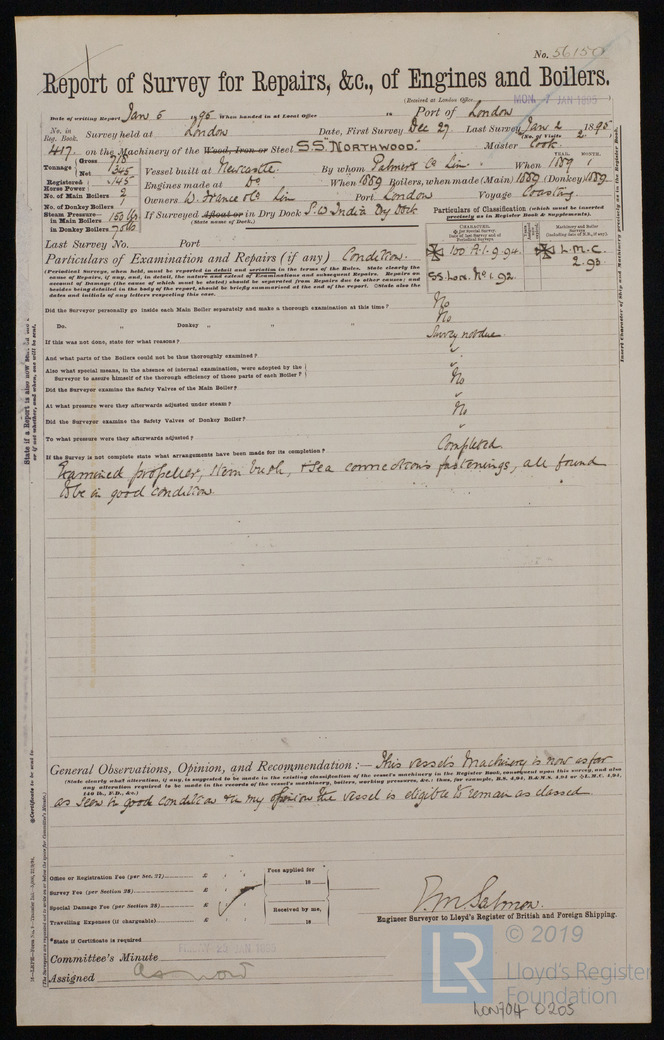 No. 56150
Report of Survey for Repairs, &c., of Engines and Boilers.
(Received at London Office MON. 7 JAN 1895)
Date of writing Report Jan 5 1895 When handed in at Local Office 18 Port of London
No. in Reg. Book. Survey held at London Date, First Survey Dec 27 Last Survey Jan 2 1895
(No. of Visits 2)
417 on the Machinery of the Wood, Iron or Steel S.S. "NORTHWOOD." Master Cook
Tonnage Gross 718 Net 345 Vessel built at Newcastle By whom Palmers Co Lim When YEAR. 1889 MONTH. 1
Registered Horse Power 145 Engines made at Do When 1889 Boilers, when made (Main) 1889 (Donkey) 1889
No. of Main Boilers 2 Owners W. France & Co Lim Port London Voyage Coasting
No. of Donkey Boilers 1
Steam Pressure in Main Boilers 150 lbs If Surveyed Afloat or in Dry Dock S.W. India Dry Dock
in Donkey Boilers (State name of Dock.)
Particulars of Classification (which must be inserted precisely as in Register Book & Supplements).
CHARACTER.
Machinery and Boiler Surveys
100 A.1. 9.94. L.M.C. 2.93
SS. Lon. No. 1. 92
Last Survey No. Port
Particulars of Examination and Repairs (if any) Condition.
(Periodical Surveys, when held, must be reported in detail and seriatim in terms of the Rules. State clearly the cause of Repairs, if any, and, in detail, the nature and extent of Examinations and subsequent Repairs. Repairs on account of Damage (the cause of which must be stated) should be separated from Repairs due to other causes; and besides being detailed in the body of the report, should be briefly summarised at the end of the report. State also the dates and initials of any letters respecting this case.
Did the Surveyor personally go inside each Main Boiler separately and make a thorough examination at this time? No
Do. " Donkey " " " No
If this was not done, state for what reasons? Survey not due
And what parts of the Boilers could not be thoroughly examined? "
Also what special means, in the absence of internal examination, were adopted by the Surveyor to assure himself of the thorough efficiency of those parts of each Boiler? "
Did the Surveyor examine the Safety Valves of the Main Boiler? No
At what pressure were they afterwards adjusted under steam? "
Did the Surveyor examine the Safety Valves of Donkey Boiler? No
To what pressure were they afterwards adjusted? "
If the Survey is not complete state what arrangements have been made for its completion? Completed.
Examined propeller, stern bush, & sea connections fastenings, all found
to be in good condition.
General Observations, Opinion, and Recommendation :— This vessel's Machinery is now as far
(State clearly what alteration, if any, is suggested to be made in the existing classification of the vessel's machinery in the Register Book, consequent upon this survey, and also any alteration required to be made in the records of the vessel's machinery, boilers, working pressures, &c.; thus, for example, B.S. 4,94, B.&M.S. 4,94 or L.M.C. 4,94, 140 lb., F.D., &c.)
as seen in good condition & in my opinion the vessel is eligible to remain as classed
Office or Registration Fee (per Sec. 27) £ Fees applied for
Survey Fee (per Section 28) £ 18
Special Damage Fee (per Section 28) £ Received by me,
Travelling Expenses (if chargeable) £ 18
Salmon.
Engineer Surveyor to Lloyd's Register of British and Foreign Shipping.
*State if Certificate is required
Committee's Minute JAN 1895
Assigned as now
© 2019
LR Lloyd's Register
Foundation
LON704-0205